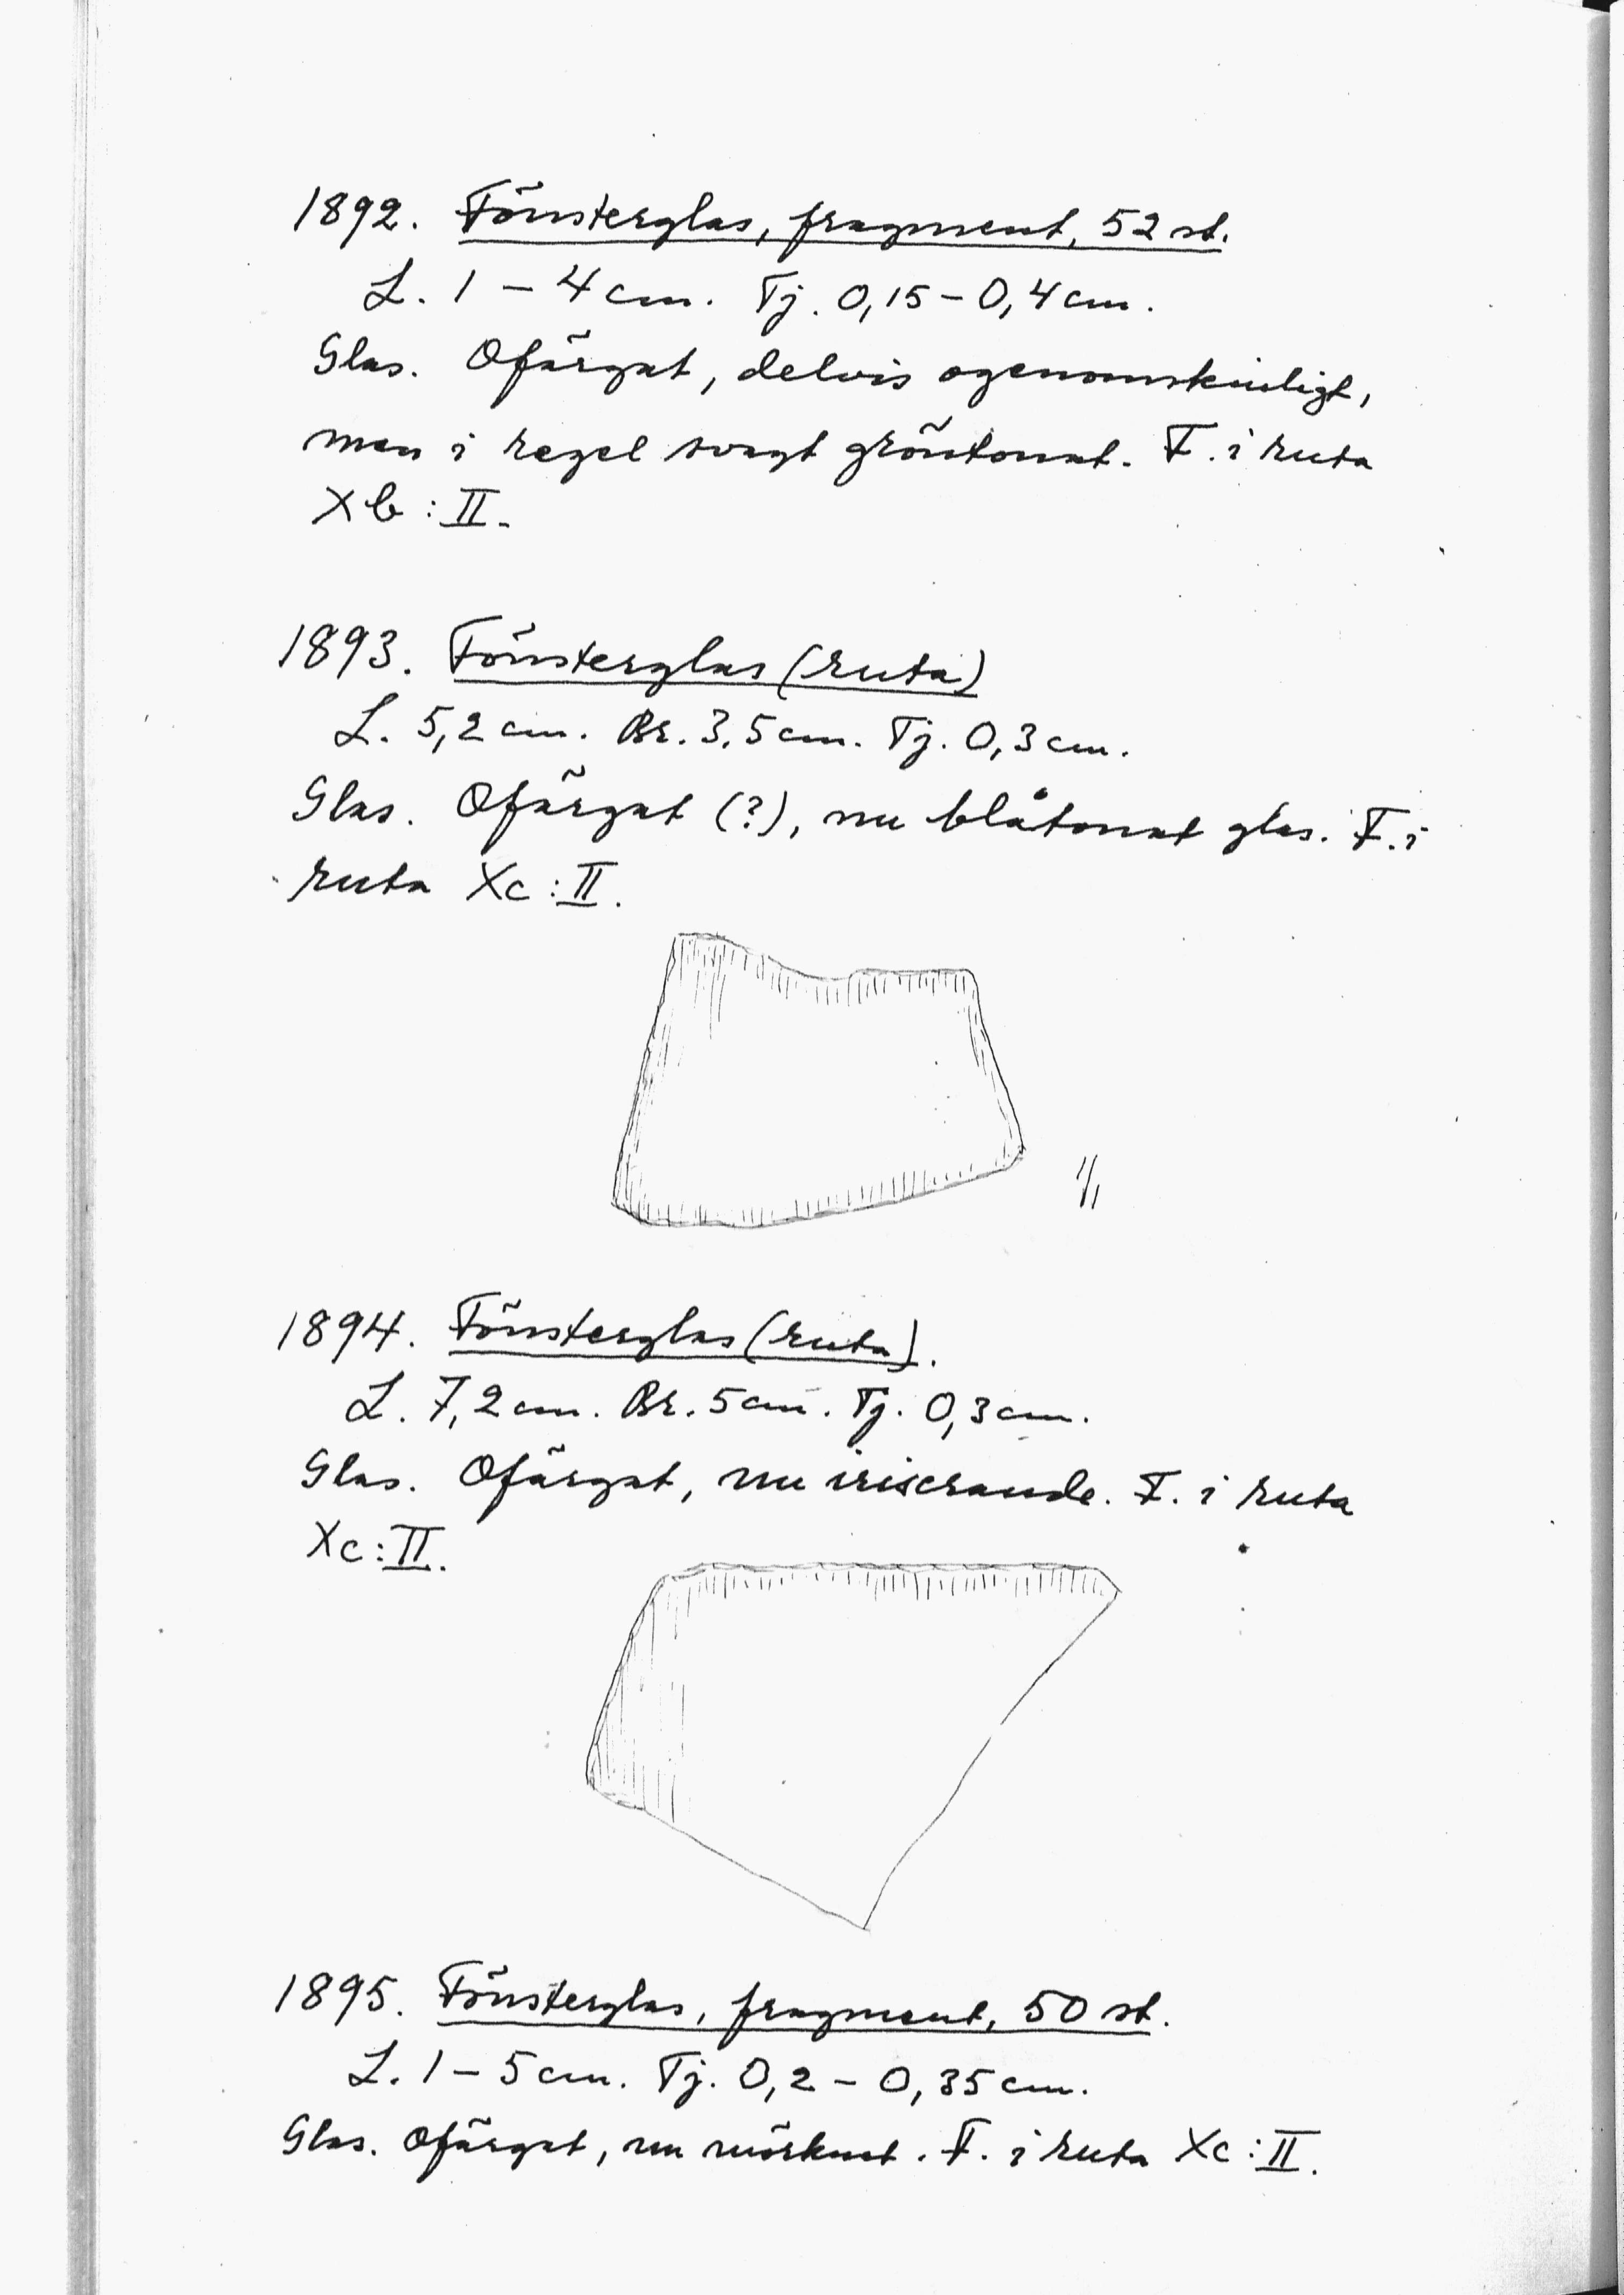 1892. Fönsterglas, fragment, 52 st.
L. 1 – 4 cm. Tj. 0,15 – 0,4 cm.
Glas. Ofärgat, delvis ogenomskinligt,
men i regel svagt gröntonat. F. i ruta
Xb : II.
1893. Fönsterglas (ruta)
L. 5,2 cm. Br. 3,5 cm. Tj. 0,3 cm.
Glas. Ofärgat (?), nu blåtonat glas. F. i
ruta Xc : II.
1/1
1894. Fönsterglas (ruta).
L. 7,2 cm. Br. 5 cm. Tj. 0,3 cm.
Glas. Ofärgat, nu iriserande. F. i ruta
Xc : II.
1895. Fönsterglas, fragment, 50 st.
L. 1 – 5 cm. Tj. 0,2 – 0,35 cm.
Glas. Ofärgat, nu mörknat. F. i ruta Xc : II.